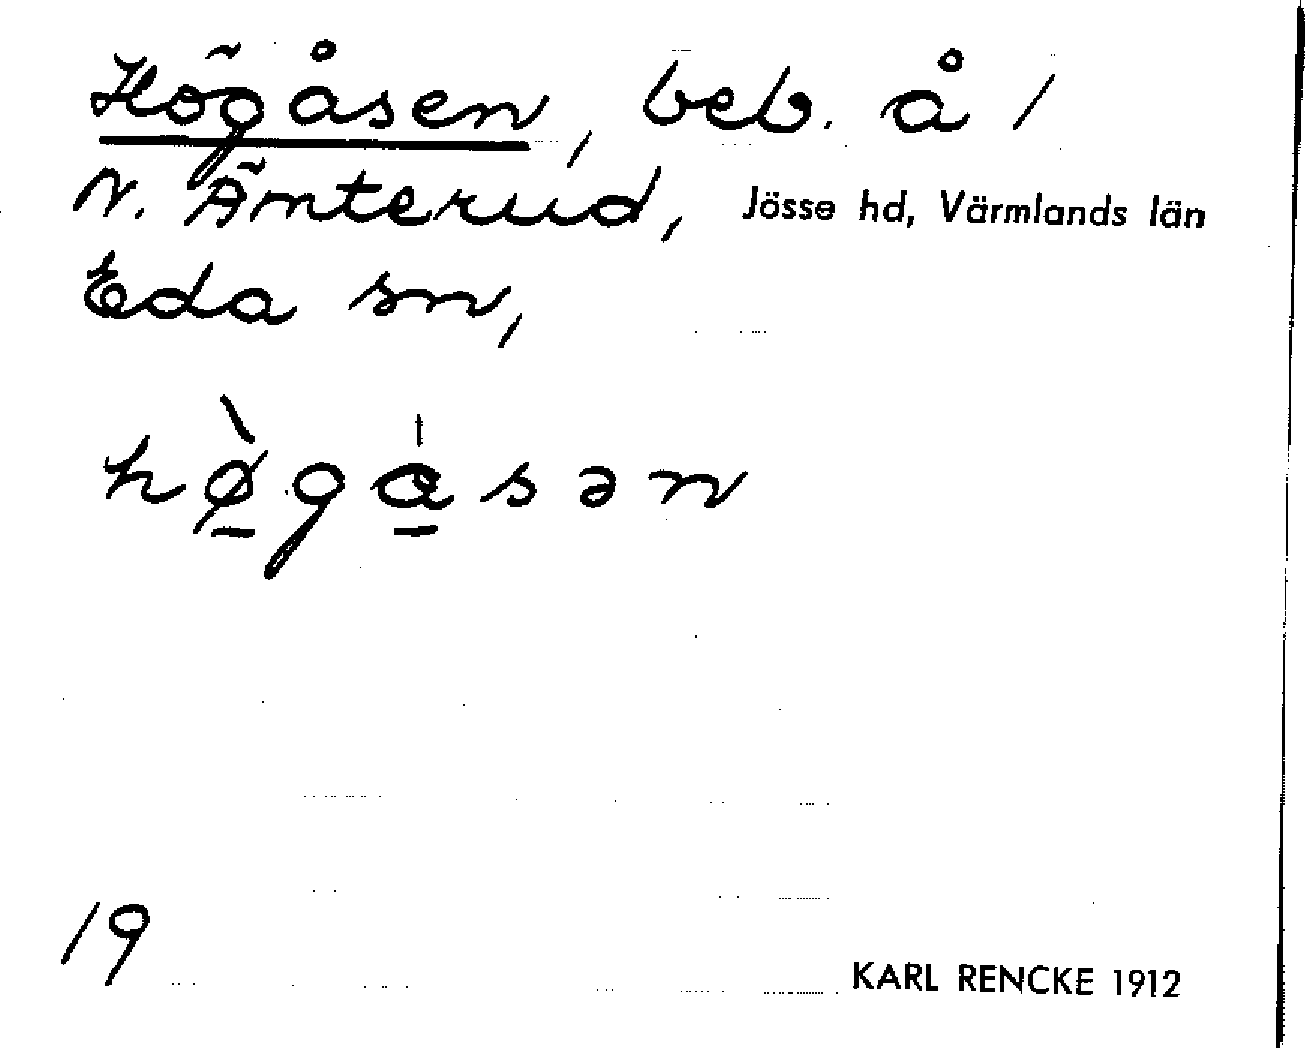 Högåsen, beb. å /
N. Ämterud, Jösse hd, Värmlands län
Eda sn,
hø̀gɑsən
19
KARL RENCKE 1912